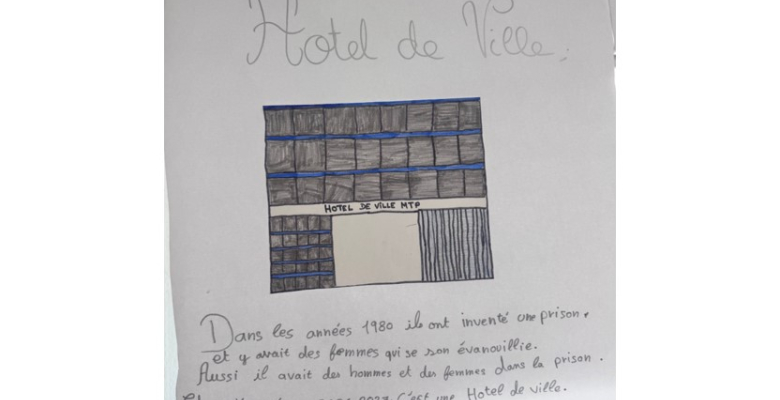 Hotel de Ville.
HOTEL DE VILLE MTP
Dans les années 1980 ils ont inventé une prison.
et y avait des femmes qui se son évanouillie.
Aussi il avait des hommes et des femmes dans la prison.
C'est une Hotel de ville.